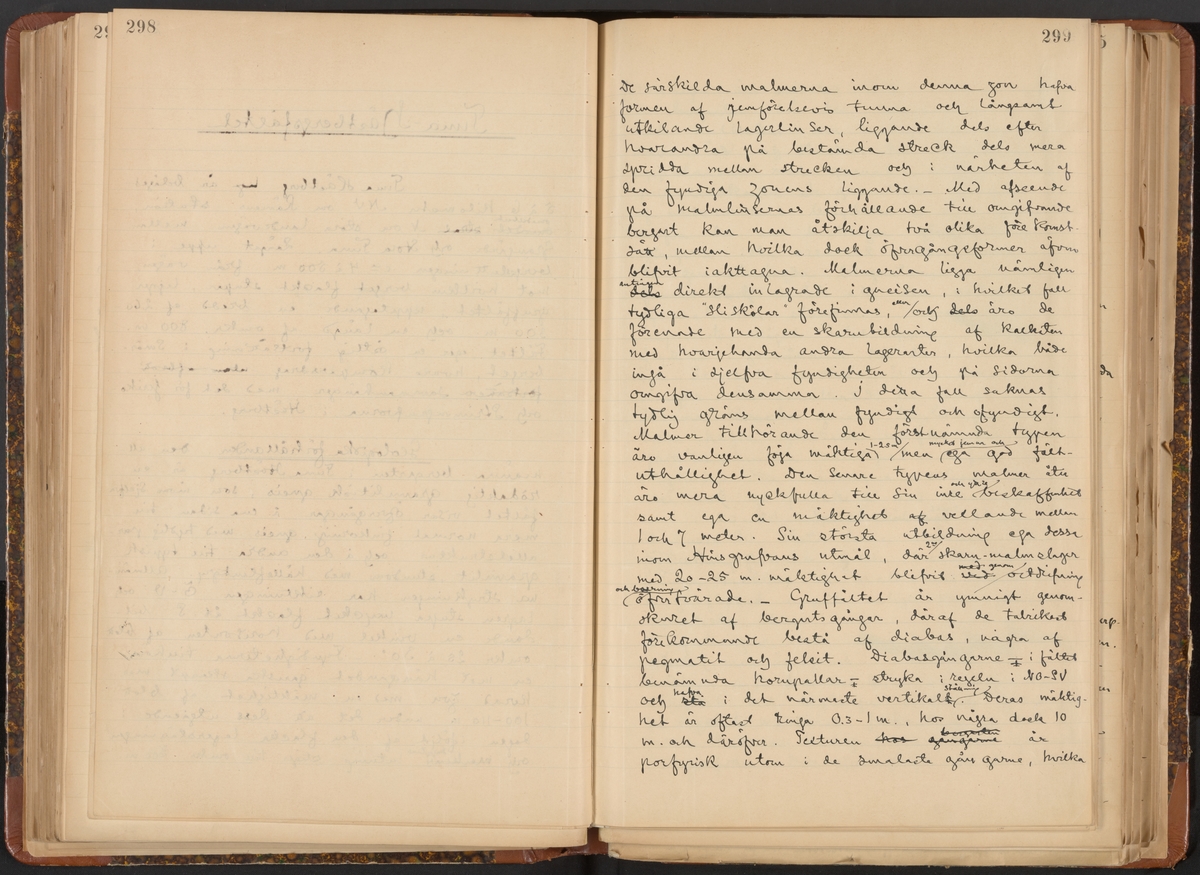 298
299
De särskilda malmerna inom denna zon hafva
formen af jemförelsevis tunna och långsamt
utkilande lagerlinser, liggande dels efter
hvarandra på bestämda streck dels mera
spridda mellan strecken och i närheten af
den fyndiga zonens liggande. – Med afseende
på malmlinsernas förhållande till omgifvande
bergart kan man åtskilja två olika förekomst-
sätt, mellan hvilka dock öfvergångsformer äfven
blifvit iakttagna. Malmerna ligga nämligen
antingen
dels direkt inlagrade i gneisen, i hvilket fall
tydliga "sliskölar" förefinnas, eller/och dels äro de
förenade med en skarnbildning af kalksten
med hvarjehanda andra lagerarter, hvilka både
ingå i sjelfva fyndigheten och på sidorna
omgifva densamma. I detta fall saknas
tydlig gräns mellan fyndigt och ofyndigt.
Malmer tillhörande den förstnämnda typen
äro vanligen föja mäktiga (1-2.5 m) men mycket jemn och ega god fält-
uthållighet. Den senare typens malmer åter
äro mera nyckfulla till sin inre och yttre beskaffenhet
samt ega en mäktighet af vexlande mellan
1 och 7 meter. Sin största utbildning ega dessa
inom Hansgrufvans utmål, där 2ne skarn-malmslager
med 20-25 m. mäktighet blifvit ved medelst genom ortdrifning
och borrning
öfverfvärade. – Gruffältet är ymnigt genom-
skuret af bergartsgångar, däraf de talrikast
förekommande bestå af diabas, några af
pegmatit och felsit. Diabasgångarne – i fältet
benämnda hornpallar – stryka i regeln i NO-SV
och hafva stå i det närmaste vertikalt ställ. Deras mäktig-
het är oftast ringa 0.3-1 m., hos några dock 10
m. och däröfver. Texturen hos gångarne bergarten är
porfyrisk utom i de smalaste gångarne, hvilka